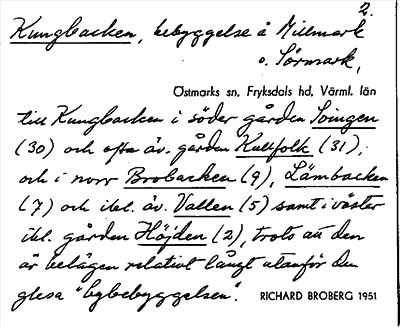 2.
Kungbacken, bebyggelse å Millmark
o. Sörmark,
Östmarks sn, Fryksdals hd, Värml. län
till Kungbacken i söder gården Soingen
(30) och ofta äv. gården Kullfolk (31),
och i norr Brobacken (9), Lämbacken
(7) och ibl. äv. Vallen (5) samt i väster
ibl. gården Höjden (2), trots att den
är belägen relativt långt utanför den
glesa "bybebyggelsen".
RICHARD BROBERG 1951